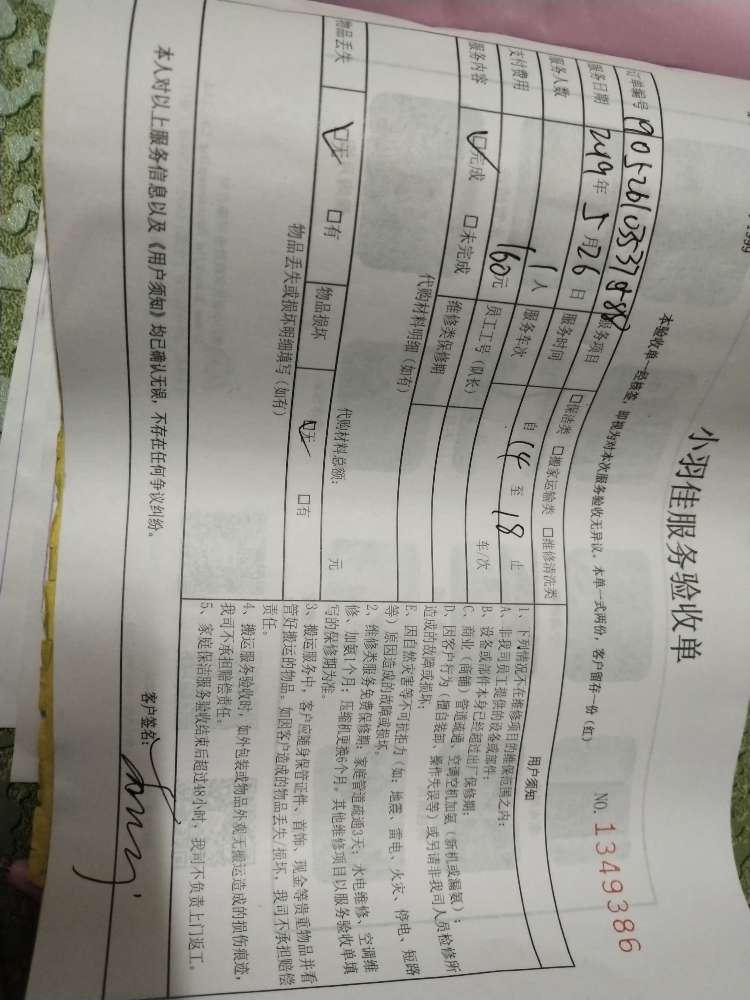 小羽佳服务验收单
本验收单一经核签，即视为对本次服务验收无异议。本单一式两份，客户留存一份（红）
NO. 1349386
订单编号 服务项目 □保洁类 □搬家运输类 □维修清洗类
服务日期 2019年5月26日 服务时间 自 14 至 18 止
服务人数 1人 服务车次 车/次
支付费用 160元 员工工号（队长）
服务内容 ☑完成 □未完成 维修类保修期
代购材料明细（如有）
代购材料总额： 元
物品丢失 ☑无 □有 物品损坏 ☑无 □有
物品丢失或损坏明细填写（如有）
用户须知
1、下列情况不在维修项目的维保范围之内：
A、非我司员工提供的设备或部件；
B、设备或部件本身已经超过出厂保修期；
C、商业（商铺）管道疏通、空调空机加氨（新机或漏氨）；
D、因客户行为（擅自装卸、操作失误等）或另请非我司人员检修所
造成的故障或损坏；
E、因自然灾害等不可抗拒力（如：地震、雷电、火灾、停电、短路
等）原因造成的故障或损坏。
2、维修类服务免费保修期：家庭管道疏通3天；水电维修、空调维
修、加氨1个月；压缩机更换6个月。其他维修项目以服务验收单填
写的保修期为准。
3、搬运服务中，客户应随身保管证件、首饰、现金等贵重物品并看
管好搬运的物品。如因客户造成的物品丢失/损坏，我司不承担赔偿
责任。
4、搬运服务验收时，如外包装或物品外观无搬运造成的损伤痕迹，
我司不承担赔偿责任。
5、家庭保洁服务验收结束后超过48小时，我司不负责上门返工。
本人对以上服务信息以及《用户须知》均已确认无误，不存在任何争议纠纷。
客户签名：